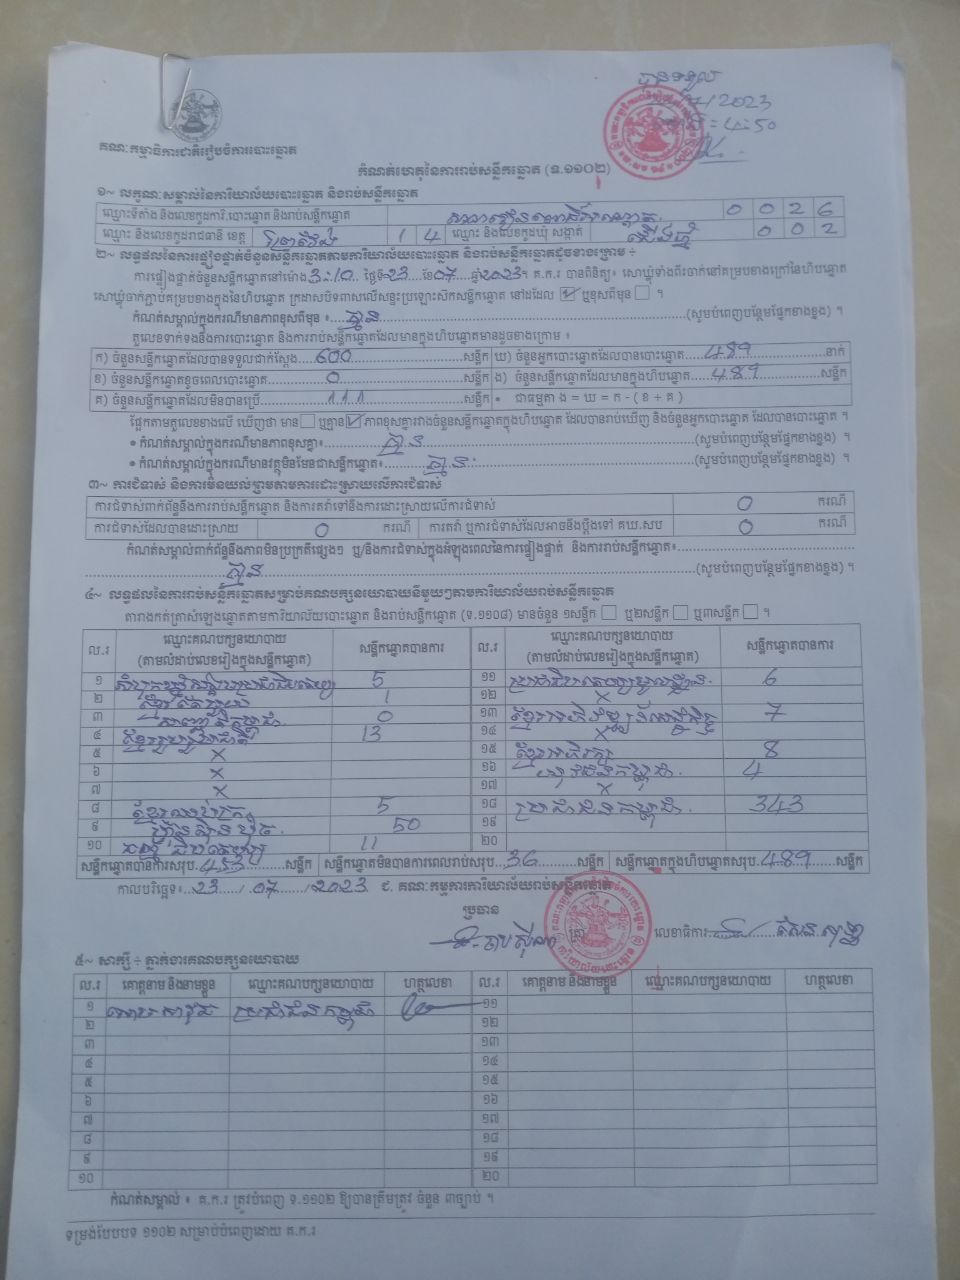 បានទទួល
2023
4:50
គណៈកម្មាធិការជាតិរៀបចំការបោះឆ្នោត
កំណត់ហេតុនៃការរាប់សន្លឹកឆ្នោត (ទ.១១០២)
១~ លក្ខណៈសម្គាល់នៃការិយាល័យបោះឆ្នោត និងរាប់សន្លឹកឆ្នោត
ឈ្មោះទីតាំង និងលេខកូដការិ.បោះឆ្នោត និងរាប់សន្លឹកឆ្នោត 0 0 2 6
ឈ្មោះ និងលេខកូដរាជធានី ខេត្ត ព្រៃវែង 1 4 ឈ្មោះ និងលេខកូដឃុំ សង្កាត់ 0 0 2
២~ លទ្ធផលនៃការផ្ទៀងផ្ទាត់ចំនួនសន្លឹកឆ្នោតតាមការិយាល័យបោះឆ្នោត និងរាប់សន្លឹកឆ្នោតដូចខាងក្រោម ÷
ការផ្ទៀងផ្ទាត់ចំនួនសន្លឹកឆ្នោតនៅម៉ោង 3:10 ថ្ងៃទី 23 ខែ 07 ឆ្នាំ 2023។ គ.ក.រ បានពិនិត្យ៖ សោឃ្លុំទាំងពីរចាក់នៅគម្របខាងក្រៅនៃហិបឆ្នោត
សោឃ្លុំចាក់ភ្ជាប់គម្របខាងក្នុងនៃហិបឆ្នោត ក្រដាសបិទពាសលើសន្ទះប្រឡោះស៊កសន្លឹកឆ្នោត នៅដដែល ☑ ឬខុសពីមុន ☐ ។
កំណត់សម្គាល់ក្នុងករណីមានភាពខុសពីមុន ៖ គ្មាន (សូមបំពេញបន្ថែមផ្នែកខាងខ្នង) ។
តួលេខទាក់ទងនឹងការបោះឆ្នោត និងការរាប់សន្លឹកឆ្នោតដែលមានក្នុងហិបឆ្នោតមានដូចខាងក្រោម ៖
ក) ចំនួនសន្លឹកឆ្នោតដែលបានទទួលជាក់ស្តែង 600 សន្លឹក ឃ) ចំនួនអ្នកបោះឆ្នោតដែលបានបោះឆ្នោត 489 នាក់
ខ) ចំនួនសន្លឹកឆ្នោតខូចពេលបោះឆ្នោត 0 សន្លឹក ង) ចំនួនសន្លឹកឆ្នោតដែលមានក្នុងហិបឆ្នោត 489 សន្លឹក
គ) ចំនួនសន្លឹកឆ្នោតដែលមិនបានប្រើ 111 សន្លឹក • ជាធម្មតា ង = ឃ = ក - ( ខ + គ )
ផ្អែកតាមតួលេខខាងលើ ឃើញថា មាន ☐ ឬគ្មាន ☑ ភាពខុសគ្នារវាងចំនួនសន្លឹកឆ្នោតក្នុងហិបឆ្នោត ដែលបានរាប់ឃើញ និងចំនួនអ្នកបោះឆ្នោត ដែលបានបោះឆ្នោត ។
• កំណត់សម្គាល់ក្នុងករណីមានភាពខុសគ្នា៖ គ្មាន (សូមបំពេញបន្ថែមផ្នែកខាងខ្នង) ។
• កំណត់សម្គាល់ក្នុងករណីមានវត្ថុមិនមែនជាសន្លឹកឆ្នោត៖ គ្មាន (សូមបំពេញបន្ថែមផ្នែកខាងខ្នង) ។
៣~ ការជំទាស់ និងការមិនយល់ព្រមតាមការដោះស្រាយលើការជំទាស់
ការជំទាស់ពាក់ព័ន្ធនឹងការរាប់សន្លឹកឆ្នោត និងការតវ៉ាទៅនឹងការដោះស្រាយលើការជំទាស់ 0 ករណី
ការជំទាស់ដែលបានដោះស្រាយ 0 ករណី ការតវ៉ា ឬការជំទាស់ដែលអាចនឹងប្តឹងទៅ គឃ.សប 0 ករណី
កំណត់សម្គាល់ពាក់ព័ន្ធនឹងភាពមិនប្រក្រតីផ្សេងៗ ឬ/និងការជំទាស់ក្នុងអំឡុងពេលនៃការផ្ទៀងផ្ទាត់ និងការរាប់សន្លឹកឆ្នោត៖
គ្មាន (សូមបំពេញបន្ថែមផ្នែកខាងខ្នង) ។
៤~ លទ្ធផលនៃការរាប់សន្លឹកឆ្នោតសម្រាប់គណបក្សនយោបាយនីមួយៗតាមការិយាល័យរាប់សន្លឹកឆ្នោត
តារាងកត់ត្រាសំឡេងឆ្នោតតាមការិយាល័យបោះឆ្នោត និងរាប់សន្លឹកឆ្នោត (ទ.១១០៨) មានចំនួន ១សន្លឹក ☐ ឬ២សន្លឹក ☐ ឬ៣សន្លឹក ☐ ។
ល.រ ឈ្មោះគណបក្សនយោបាយ (តាមលំដាប់លេខរៀងក្នុងសន្លឹកឆ្នោត) សន្លឹកឆ្នោតបានការ ល.រ ឈ្មោះគណបក្សនយោបាយ (តាមលំដាប់លេខរៀងក្នុងសន្លឹកឆ្នោត) សន្លឹកឆ្នោតបានការ
១ 5 ១១ 6
២ 1 ១២ ×
៣ 0 ១៣ 7
៤ 13 ១៤ ×
៥ × ១៥ 8
៦ × ១៦ 4
៧ × ១៧ ×
៨ 5 ១៨ ប្រជាជនកម្ពុជា 343
៩ ហ៊្វុនស៊ិនប៉ិច 50 ១៩
១០ 11 ២០
សន្លឹកឆ្នោតបានការសរុប 453 សន្លឹក សន្លឹកឆ្នោតមិនបានការពេលរាប់សរុប 36 សន្លឹក សន្លឹកឆ្នោតក្នុងហិបឆ្នោតសរុប 489 សន្លឹក
កាលបរិច្ឆេទ៖ 23 / 07 / 2023 ជ. គណៈកម្មការការិយាល័យរាប់សន្លឹកឆ្នោត
ប្រធាន
លេខាធិការ
៥~ សាក្សី ÷ ភ្នាក់ងារគណបក្សនយោបាយ
ល.រ គោត្តនាម និងនាមខ្លួន ឈ្មោះគណបក្សនយោបាយ ហត្ថលេខា ល.រ គោត្តនាម និងនាមខ្លួន ឈ្មោះគណបក្សនយោបាយ ហត្ថលេខា
១ ប្រជាជនកម្ពុជា ១១
២ ១២
៣ ១៣
៤ ១៤
៥ ១៥
៦ ១៦
៧ ១៧
៨ ១៨
៩ ១៩
១០ ២០
កំណត់សម្គាល់ ៖ គ.ក.រ ត្រូវបំពេញ ទ.១១០២ ឱ្យបានត្រឹមត្រូវ ចំនួន ៣ច្បាប់ ។
ទម្រង់បែបបទ ១១០២ សម្រាប់បំពេញដោយ គ.ក.រ